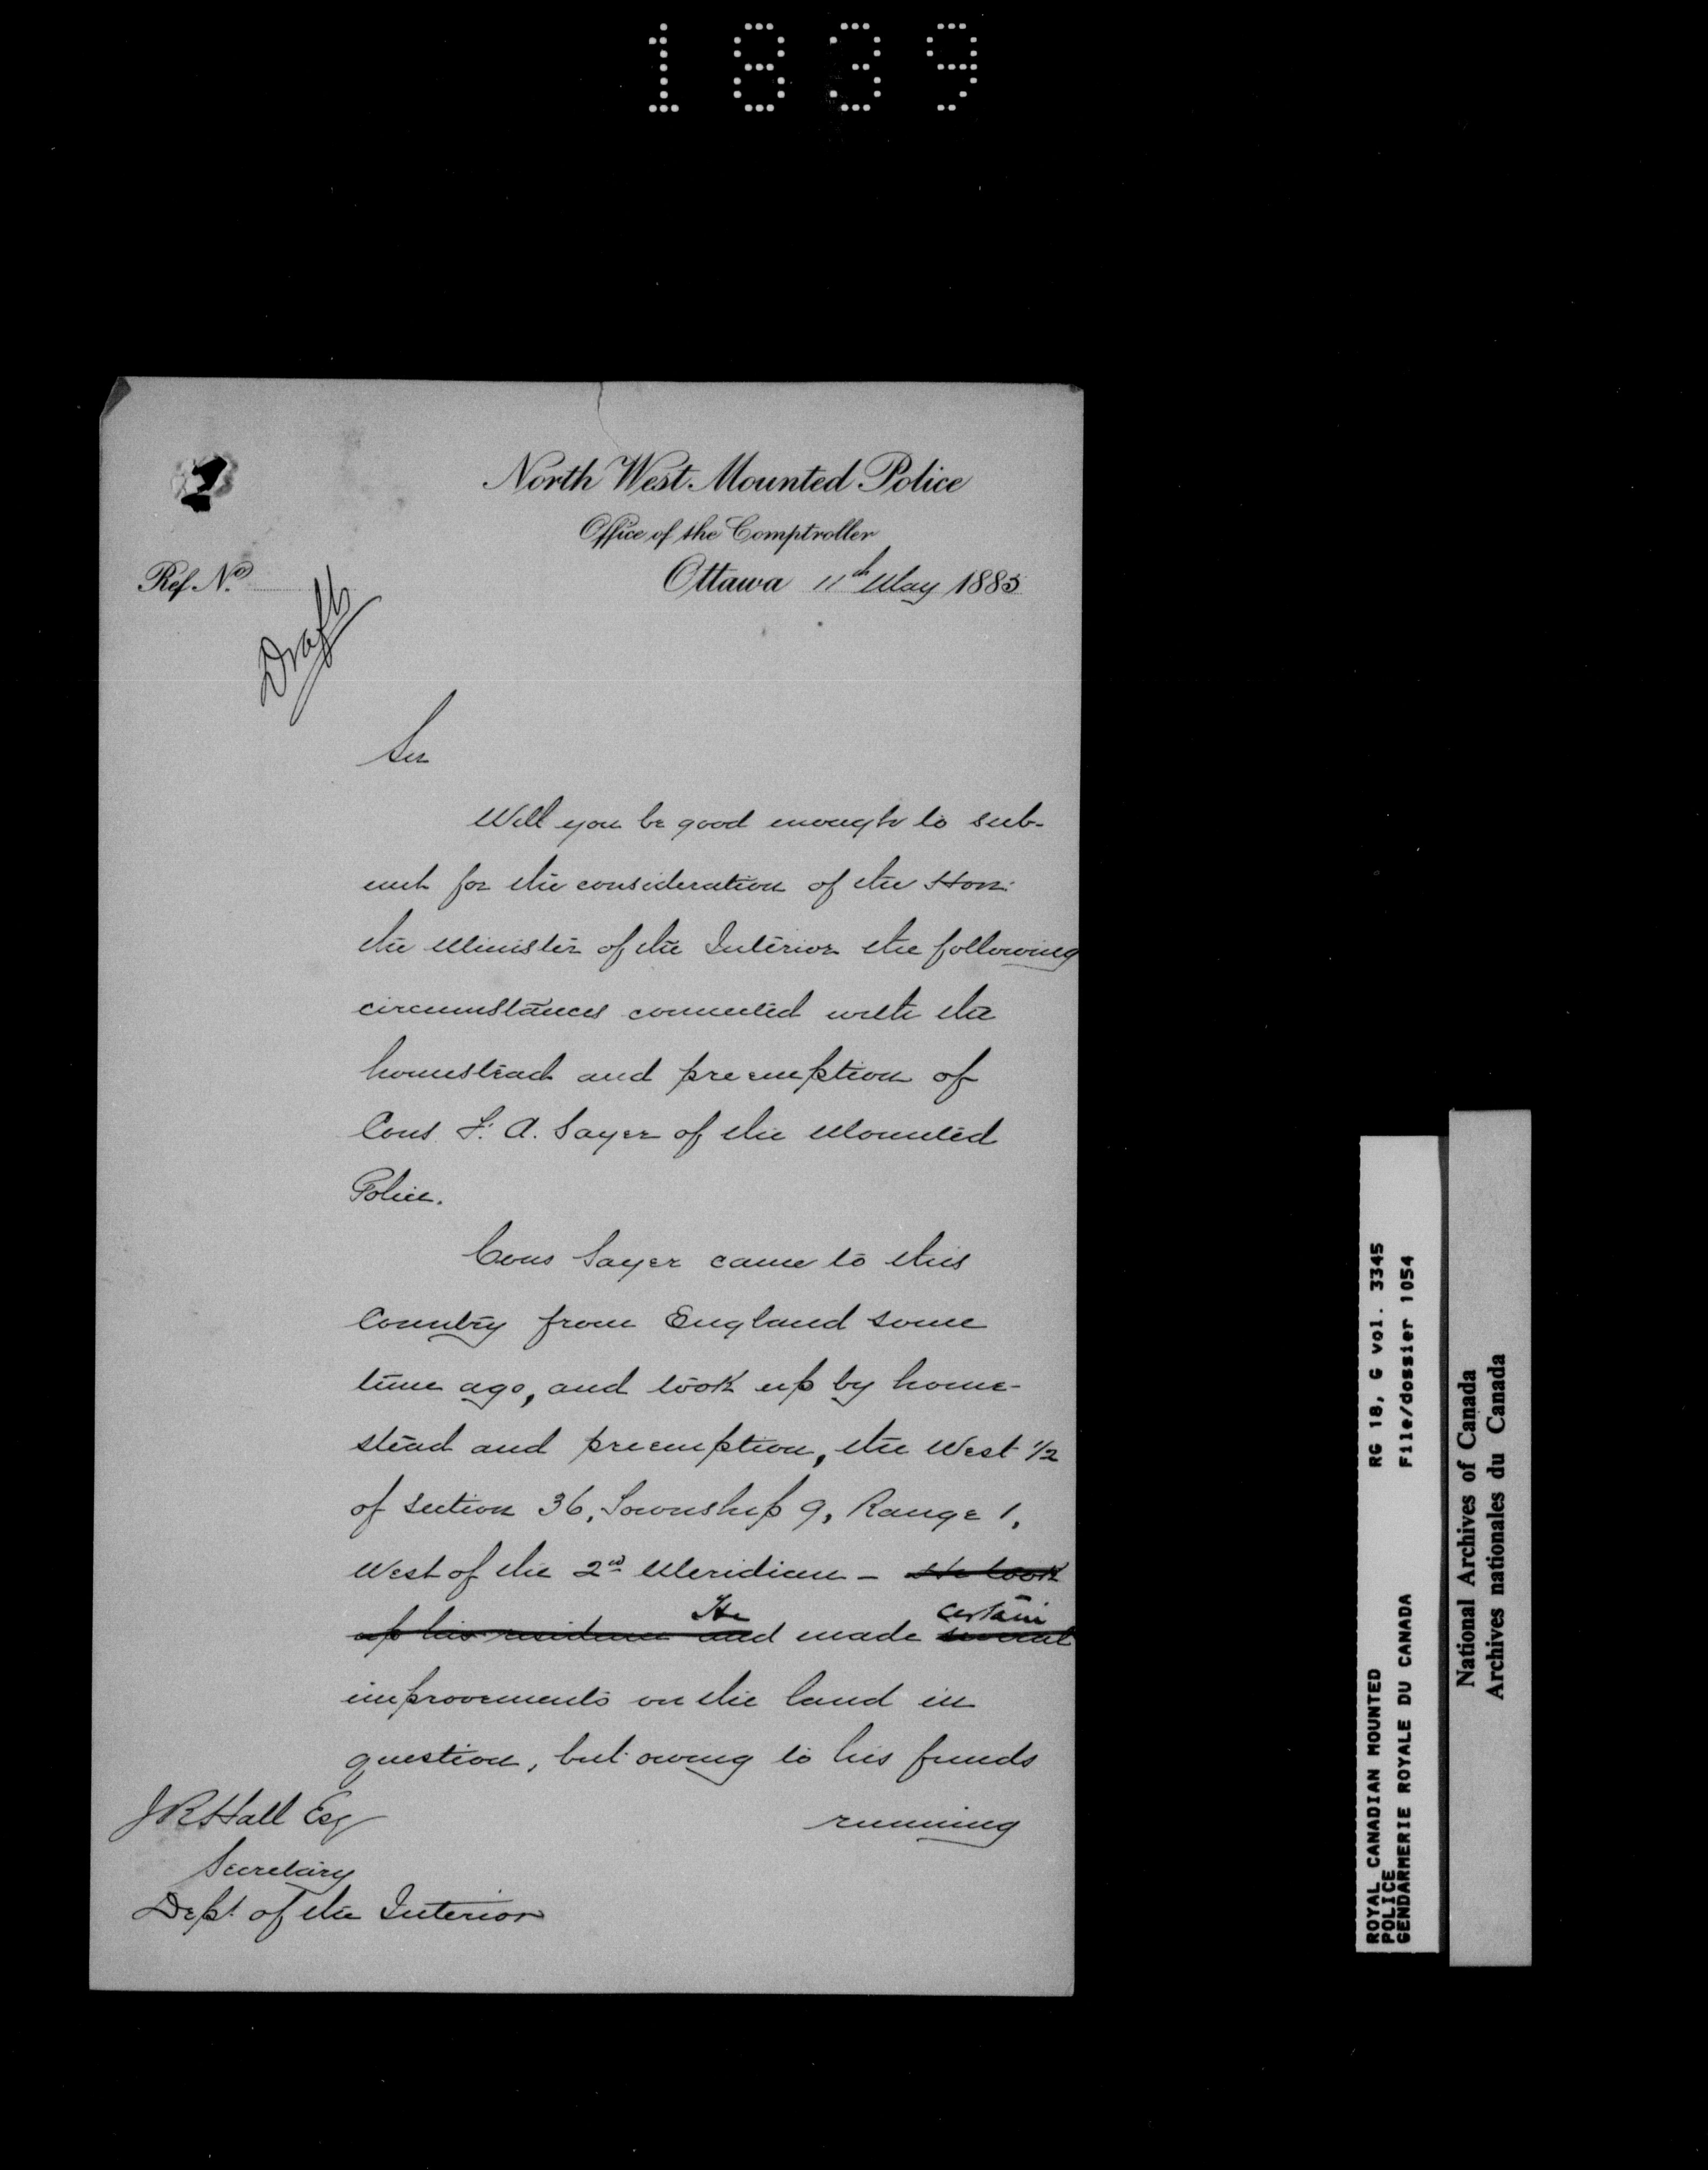 1839
North West Mounted Police
Office of the Comptroller
Ref. No.
Ottawa 11th May 1885
Draft
Sir
Will you be good enough to sub-
mit for the consideration of the Hon:
the Minister of the Interior the following
circumstances connected with the
homestead and preemption of
Cons F. A. Sayer of the Mounted
Police.
Cons Sayer came to this
Country from England some
time ago, and took up by home-
stead and preemption, the West 1/2
of section 36, Township 9, Range 1,
West of the 2nd Meridian - He took
up his residence and He made several certain
improvements on the land in
question, but owing to his funds
running
J R Hall Esq
Secretary
Dept. of the Interior
ROYAL CANADIAN MOUNTED
POLICE
GENDARMERIE ROYALE DU CANADA
RG 18, G vol. 3345
File/dossier 1054
National Archives of Canada
Archives nationales du Canada